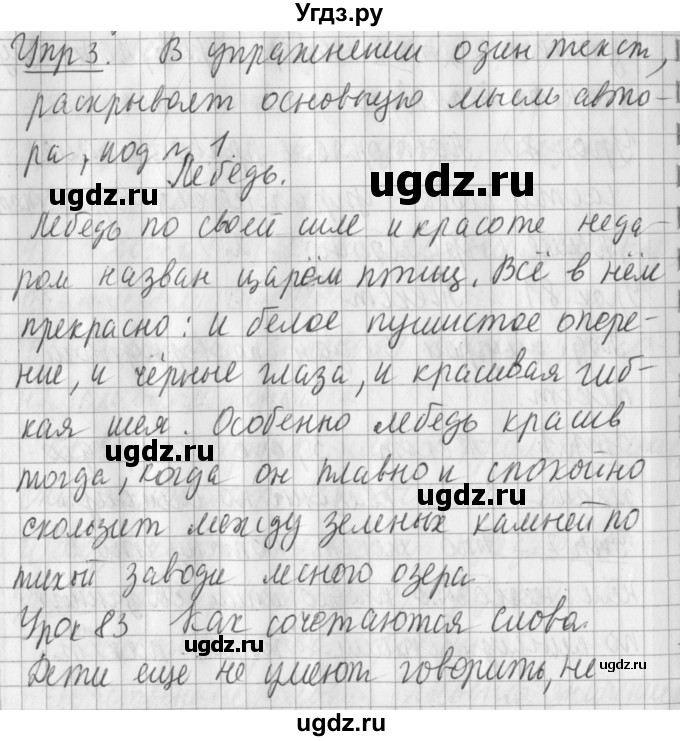 Угдз.ру
Упр 3. В упражнении один текст,
раскрывает основную мысль авто-
ра, под № 1.
Лебедь.
ugdz.ru
ugdz.ru
Лебедь по своей силе и красоте неда-
ром назван царём птиц. Всё в нём
прекрасно: и белое пушистое опере-
ние, и чёрные глаза, и красивая гиб-
кая шея. Особенно лебедь красив
ugdz.ru
ugdz.ru
тогда, когда он плавно и спокойно
скользит между зеленых камней по
тихой заводи лесного озера
Урок 83 Как сочетаются слова.
ugdz.ru
Дети еще не умеют говорить, не
ugdz.ru
ugdz.ru